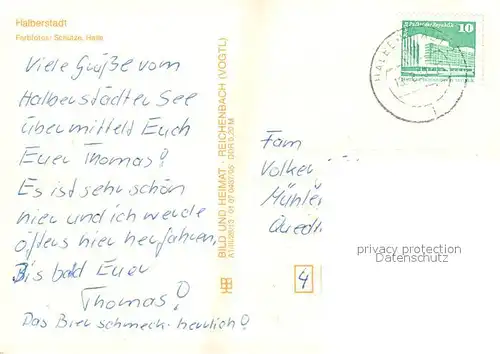 Halberstadt
Farbfotos: Schulze, Halle
Viele Grüße vom
Halberstädter See
übermittelt Euch
Euer Thomas!
Es ist sehr schön
hier und ich werde
öfters hier herfahren,
Bis bald Euer
Thomas!
Das Bier schmeck. herrlich!
BILD UND HEIMAT · REICHENBACH (VOGTL)
DDR 0,20 M
10
Fam
Volker
Mühlen
Quedl
privacy protection
www.oldthing.de
4